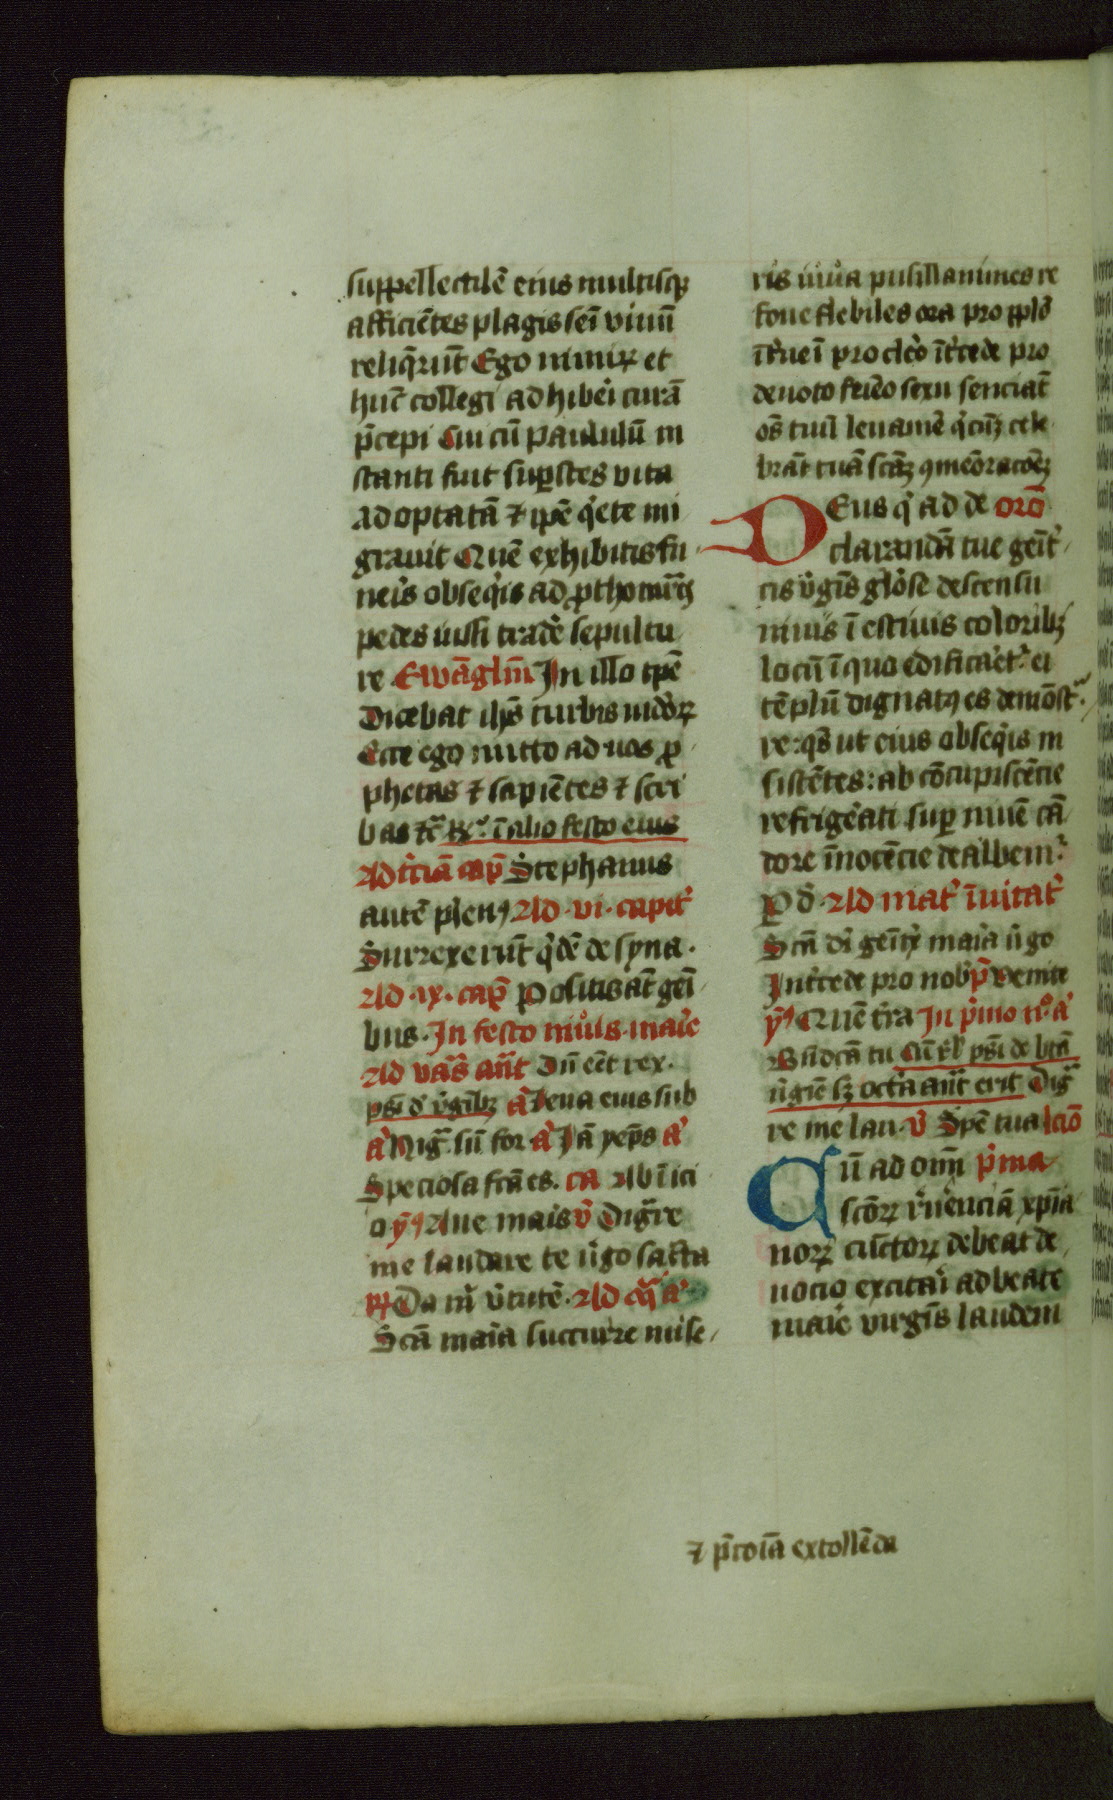 suppellectilē eius multisq3
afficiētes plagis sēi viuū
reliq̄rūt Ego nimiꝝ et
hūc collegi adhibe͛i curā
p̄cepi Cui cū paululū in
stanti fuit suꝑstes vita
adoptatā ⁊ ip̄e q͛ete mi
grauit Quē exhibitis fu
ne͛is obseq͛is ad ꝓthom̄r̄is
pedes iussi trade͛ sepultu
re Ewāgliū In illo tp̄e
Dicebat ih̄s turbis iudeoꝝ
Ecce ego mitto ad uos ꝓ
phetas ⁊ sapiētes ⁊ scri
bas ⁊c̄ ī alio festo eius
Ad t͛ciā cap̄ Stephanus
autē plenꝰ Ad ·vi· capit͛
Surrexerūt q͛dē de syna·
Ad ·ix· cap̄ Positis āt geī
bus· In festo niuis marie
Ad vās̄ an̄t Dū eēt rex·
ps̄i d͛ v͛gīb3 a͛ Leua eius sub
a͛ Nig͛ sū for a͛ Jā yep̄s a͛
Speciosa fcā es· ca Ab īici
o y̅ꝰ Aue maris v̄ Dig͛re
me laudare te v͛go sacͣta
℟ Da m͛ v͛tutē· Ad a͛
Scā maria succurre mise
ris iuua pusillanimes re
foue flebiles ora pro pplo͛
īt͛ueī pro cle͛o īt͛cede pro
deuoto femīeo sexu senciāt
oēs tuū leuamē q͛cūq3 cele
brāt tuā scām ꝯmeōracōez
DEus q͛ ad de orō
clarandā tue geīt͛
cis v͛gīs glo͛se descensu
niuis ī estiuis colorib3
locū ī quo edificaret͛ ei
tēplū dignatꝰ es demōst͛
re: qs̄ ut eius obseq͛is in
sistētes: ab cōcupiscēcie
refrige͛ati suꝑ niuē cā
dore īnocēcie dealbem͛
P d͛· Ad mat͛ īuitat͛
Scā di͛ geīt͛x maria v͛go
Int͛cede pro nob p̄ Venite
y̅ꝰ Quē t͛ra In p͛mo n͛o a͛
Bn̄dcā tu Cū ps̄i de btā
v͛gīe s3 octa͛ an̄t erit Dig͛
re me lau· v͛ Spē tua lcıō
Cū ad om̄ p͛ma
scōꝝ r͛ue͛nciā xp̄ia
noꝝ cūctoꝝ debeat de
uocio excitari ad beate
marie virgis laudem
⁊ p̄coīa extollēda